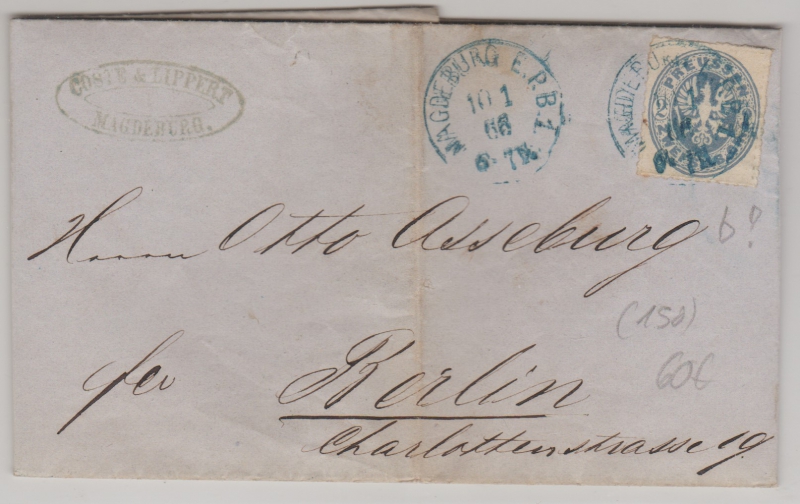 COSTE & LIPPERT
MAGDEBURG.
MAGDEBURG E.P.B.I
10 1
66
6-7N.
PREUSSEN
Herrn Otto Asseburg
b?
(150)
60€
fco Berlin
Charlottenstrasse 19.